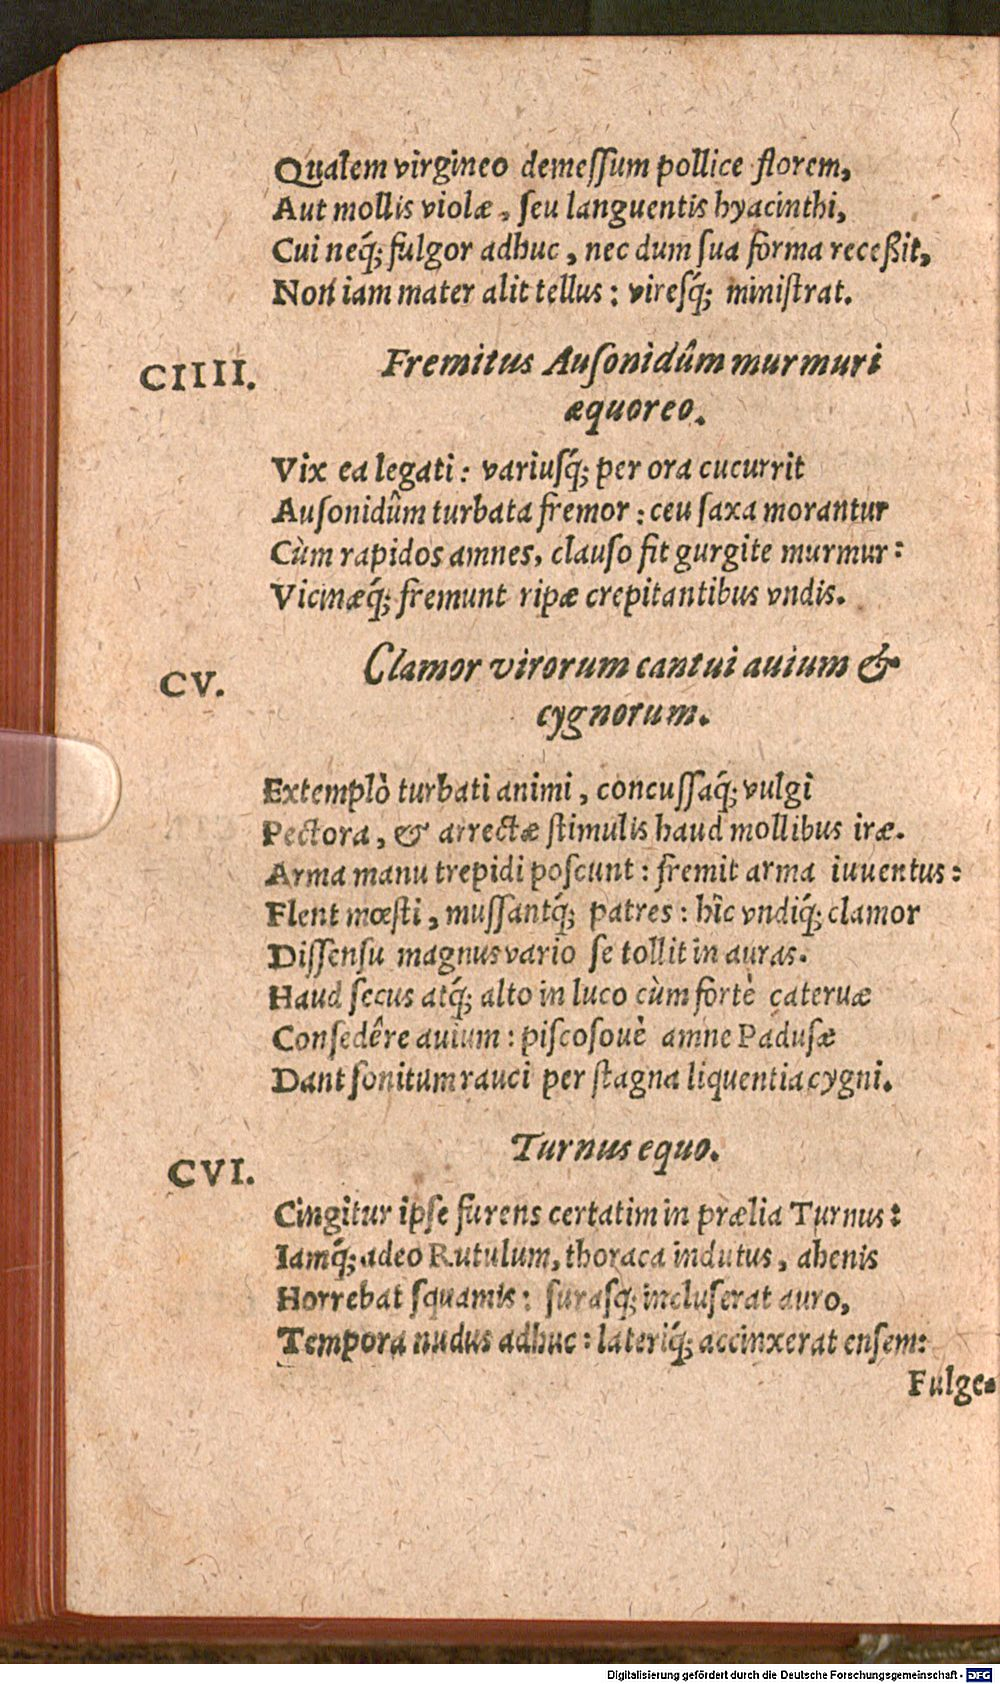 Qualem virgineo demeſſum pollice florem,
Aut mollis violæ, ſeu languentis hyacinthi,
Cui neq́; fulgor adhuc, nec dum ſua forma receßit,
Non iam mater alit tellus: viresq́; miniſtrat.
CIIII. Fremitus Auſonidûm murmuri
æquoreo.
Vix ea legati: variuſq́; per ora cucurrit
Auſonidûm turbata fremor: ceu ſaxa morantur
Cùm rapidos amnes, clauſo fit gurgite murmur:
Vicinæq́; fremunt ripæ crepitantibus vndis.
CV. Clamor virorum cantui auium &
cygnorum.
Extemplò turbati animi, concuſſaq́; vulgi
Pectora, & arrectæ ſtimulis haud mollibus iræ.
Arma manu trepidi poſcunt: fremit arma iuuentus:
Flent mœſti, muſſantq́; patres: hîc vndiq́; clamor
Diſſenſu magnus vario ſe tollit in auras.
Haud ſecus atq́; alto in luco cùm fortè cateruæ
Conſedêre auium: piſcoſouè amne Paduſæ
Dant ſonitum rauci per ſtagna liquentia cygni.
CVI. Turnus equo.
Cingitur ipſe furens certatim in prælia Turnus:
Iamq́; adeo Rutulum, thoraca indutus, ahenis
Horrebat ſquamis: ſuraſq́; incluſerat auro,
Tempora nudus adhuc: lateriq́; accinxerat enſem:
Fulge-
Digitalisierung gefördert durch die Deutsche Forschungsgemeinschaft - DFG